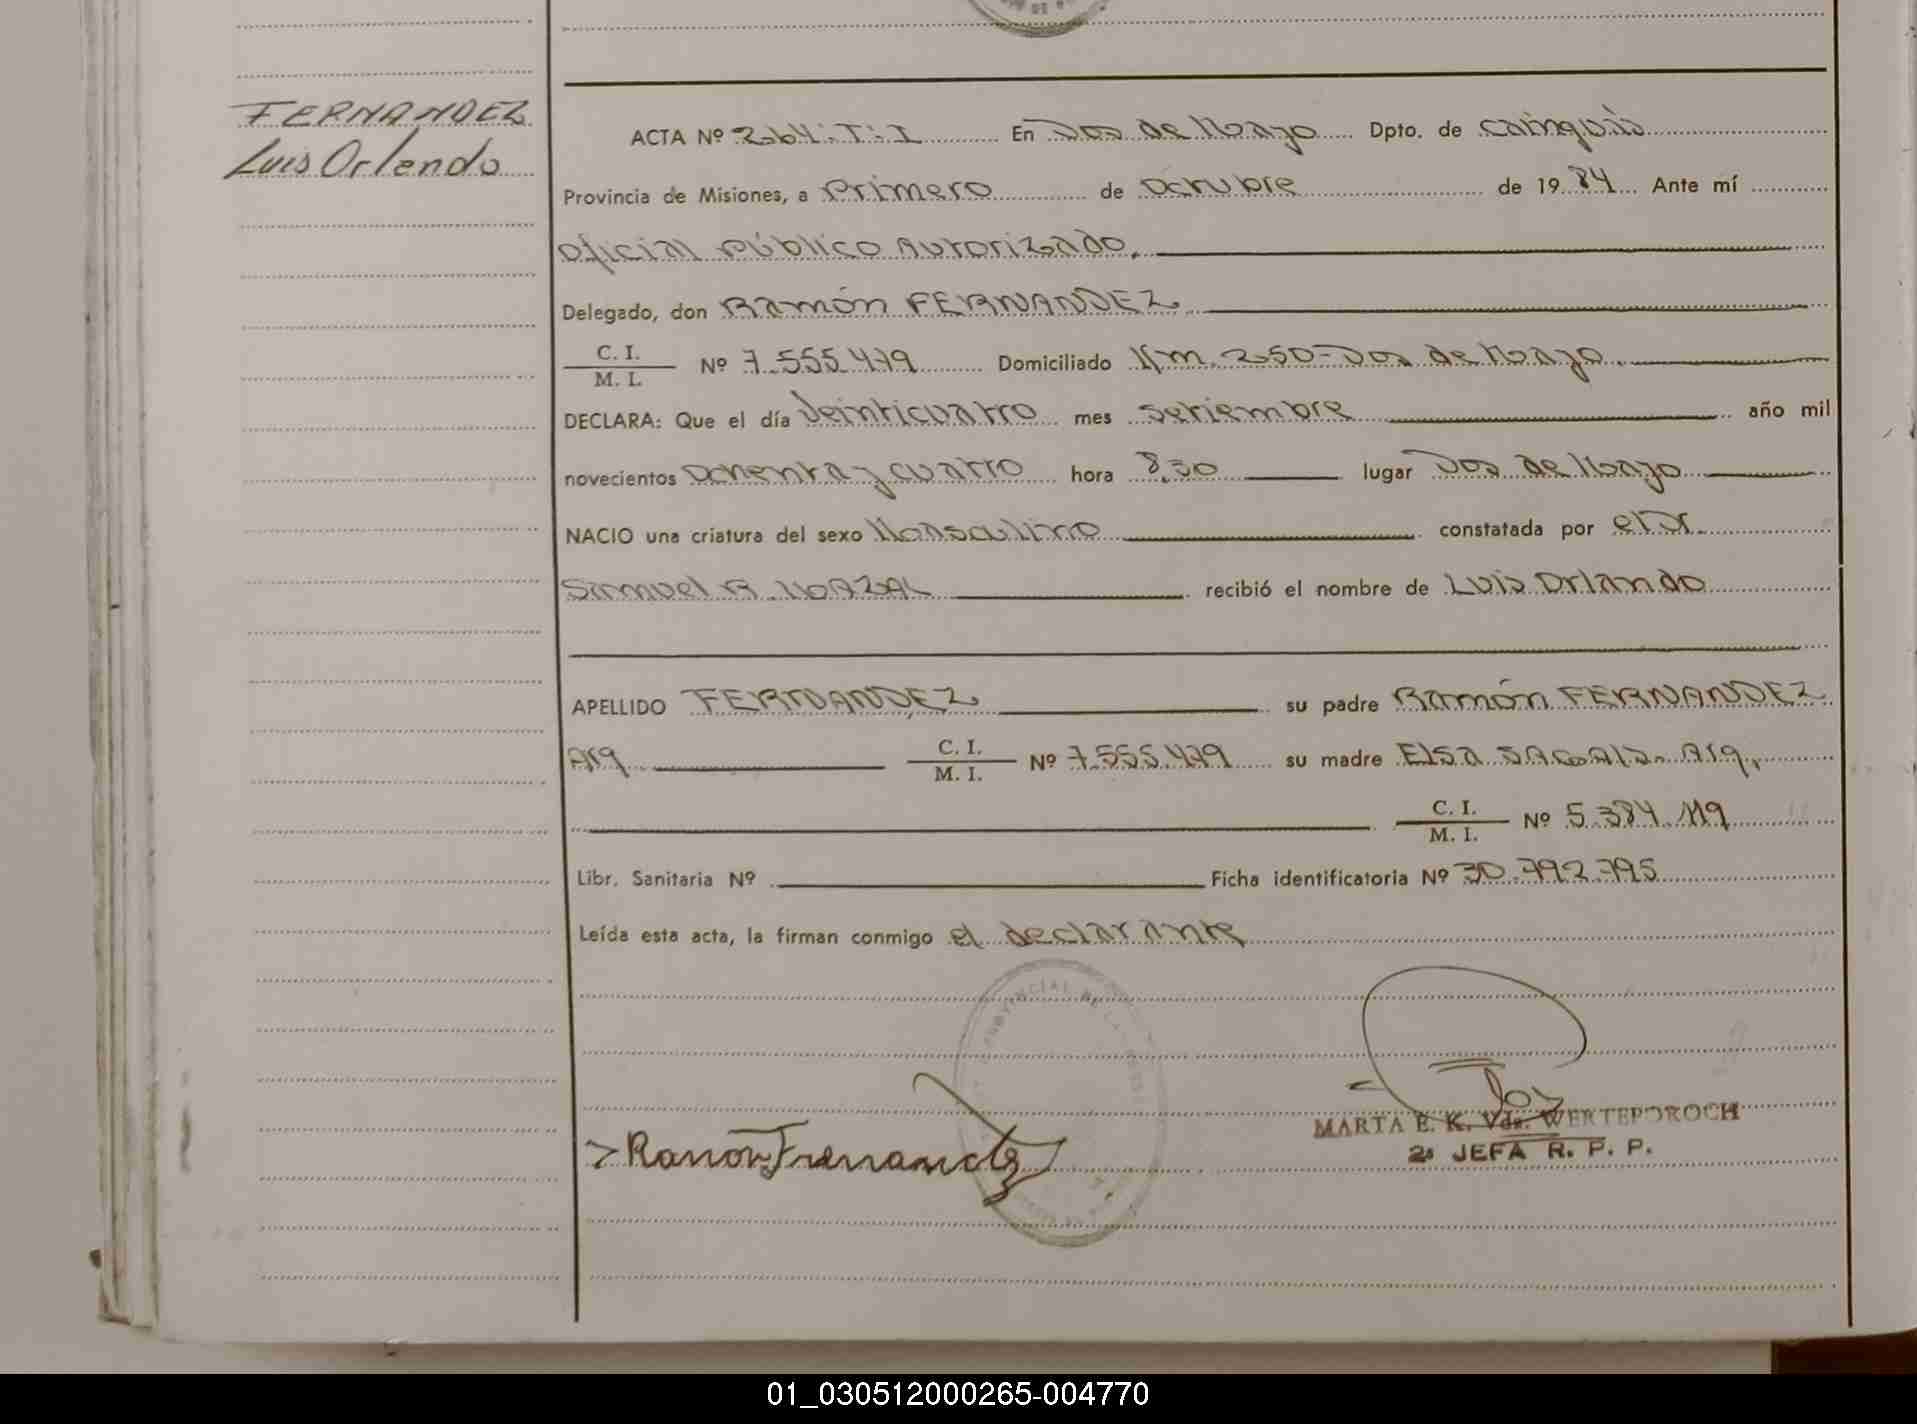 FERNANDEZ
Luis Orlando
ACTA Nº 264-T-I En Dos de Mayo Dpto. de Cainguás
Provincia de Misiones, a Primero de Octubre de 1984 Ante mí
Oficial Público Autorizado,
Delegado, don Ramón FERNANDEZ
C. I.
M. I. Nº 7.555.479 Domiciliado Km. 250-Dos de Mayo.
DECLARA: Que el día Veinticuatro mes Setiembre año mil
novecientos Ochenta y cuatro hora 8,30 lugar Dos de Mayo
NACIO una criatura del sexo Masculino constatada por el Dr.
Samuel R. MAZAL recibió el nombre de Luis Orlando
APELLIDO FERNANDEZ su padre Ramón FERNANDEZ
Arg. C. I.
M. I. Nº 7.555.479 su madre Elsa Arg.
C. I.
M. I. Nº 5.384.119
Libr. Sanitaria Nº Ficha identificatoria Nº 30.792.795
Leída esta acta, la firman conmigo el declarante
PROVINCIAL DE LAS
Ramon Fernandez
MARTA E. K. Vda. WERTEPOROCH
2a JEFA R. P. P.
01_030512000265-004770